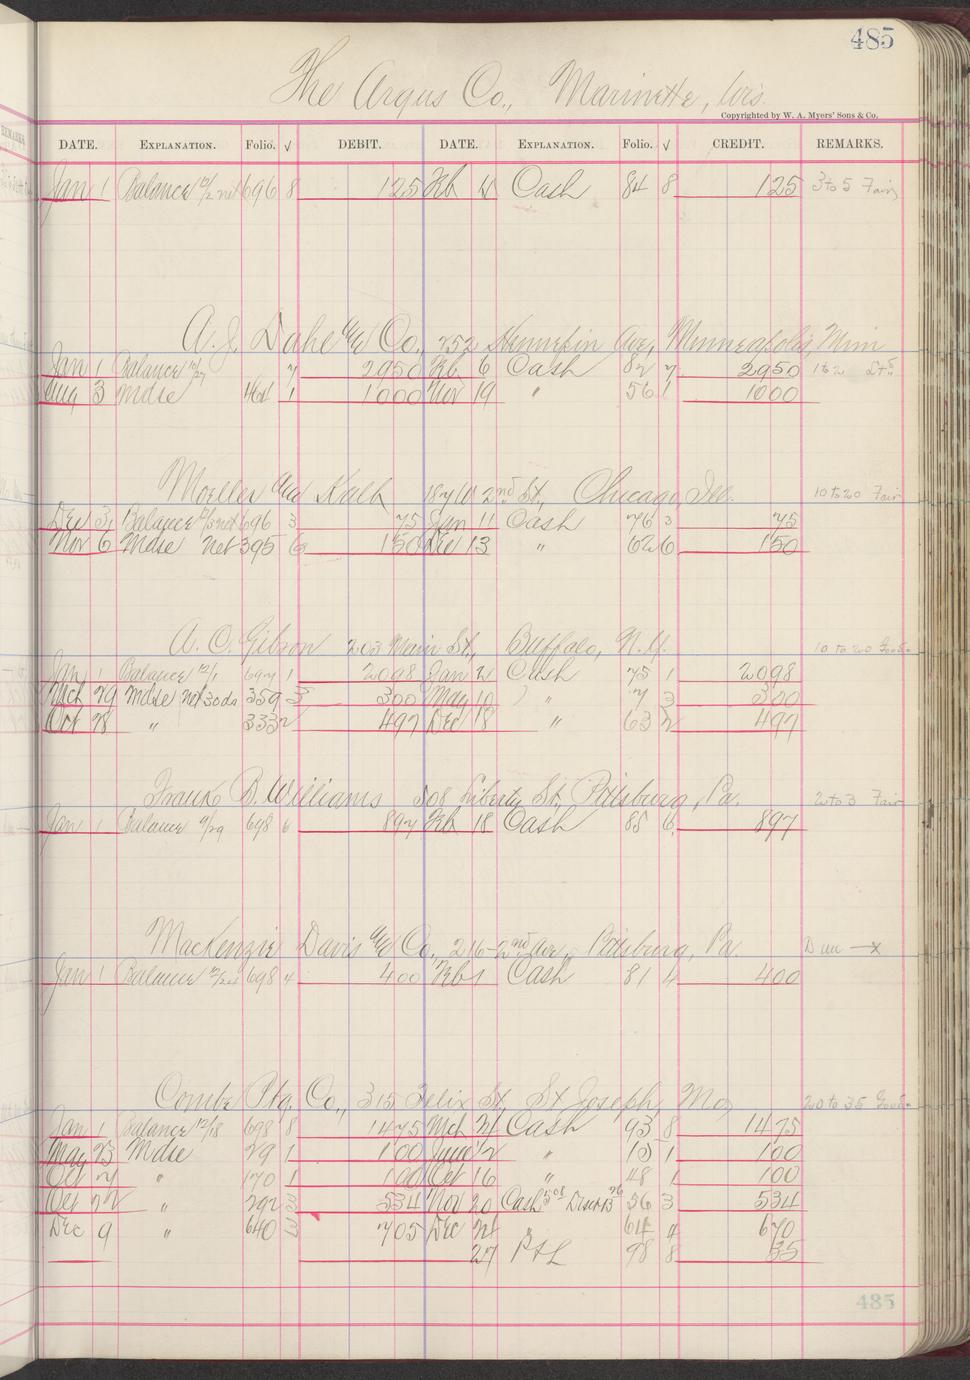 485
The Argus Co., Marinette, Wis.
Copyrighted by W. A. Myers' Sons & Co.
DATE. EXPLANATION. Folio. √ DEBIT. DATE. EXPLANATION. Folio. √ CREDIT. REMARKS.
Jan 1 Balance 12/2 net 696 8 125 Feb 4 Cash 84 8 125 3 to 5 Fair
A. J. Dahl & Co., 252 Hennepin Ave, Minneapolis, Minn
Jan 1 Balance 12/27 7 2950 Feb 6 Cash 82 7 2950 1 to 2
Aug 3 Mdse 464 1 1000 Nov 19 " 56 1 1000
Moeller and Kalb 2nd St., Chicago, Ill. 10 to 20 Fair
Dec 31 Balance net 696 3 75 Jan 11 Cash 76 3 75
Nov 6 Mdse Net 395 6 150 Dec 13 " 62 6 150
A. C. Gibson 203 Main St., Buffalo, N.Y. 10 to 20 Good
Jan 1 Balance 12/1 697 1 2098 Jan 2 Cash 75 1 2098
Mch 29 Mdse Net 30 ds 359 3 300 May 10 " 7 3 300
Oct 28 " 333 2 497 Dec 18 " 63 2 497
Frank B. Williams 308 Liberty St, Pittsburg, Pa. 2 to 3 Fair
Jan 1 Balance 9/29 698 6 897 Feb 18 Cash 85 6 897
MacKenzie Davis & Co., 216-2nd Ave., Pittsburg, Pa. D un —x
Jan 1 Balance 698 4 400 Feb 1 Cash 81 4 400
Combe Ptg. Co., 315 Felix St, St Joseph, Mo, 20 to 35 Good
Jan 1 Balance 12/18 698 8 1475 Mch 21 Cash 93 8 1475
May 23 Mdse 29 1 100 June 2 " 15 1 100
Oct 7 " 170 1 100 Oct 16 " 48 1 100
Oct 22 " 292 3 534 Nov 20 Cash 508 Disct 26 56 3 534
Dec 9 " 640 3 705 Dec 21 " 64 4 670
27 P&L 98 8 35
485